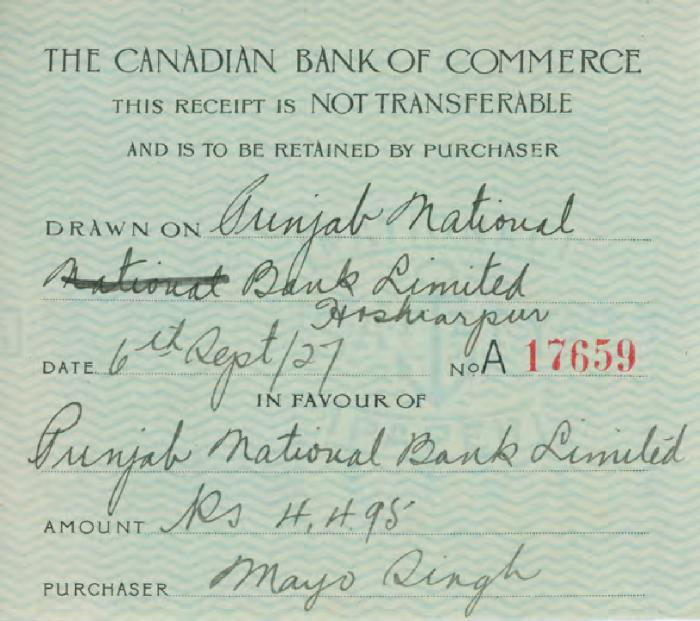 THE CANADIAN BANK OF COMMERCE
THIS RECEIPT IS NOT TRANSFERABLE
AND IS TO BE RETAINED BY PURCHASER
DRAWN ON Punjab National
National Bank Limited
Hoshiarpur
DATE 6th Sept/27 No A 17659
IN FAVOUR OF
Punjab National Bank Limited
AMOUNT Rs 4,495
PURCHASER Mayo Singh